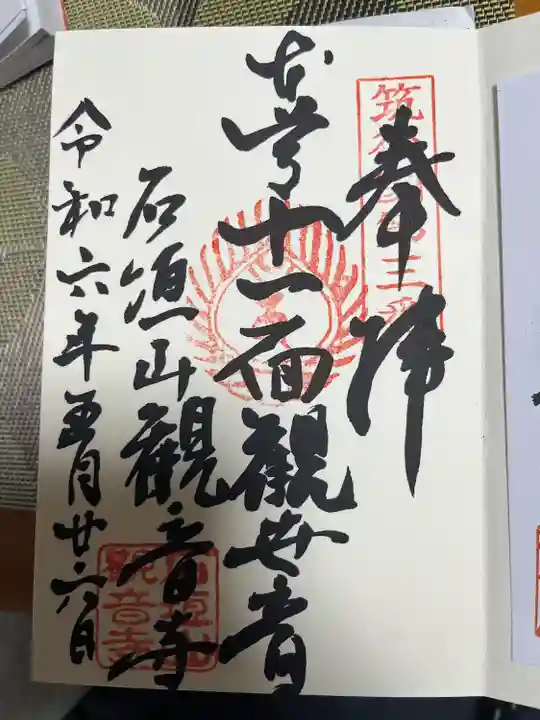 奉拝
本尊十一面観世音
石垣山観音寺
令和六年五月廿六日
観音寺